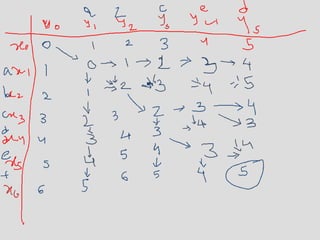 a z c e d
y0 y1 y2 y3 y4 y5
x0 0 1 2 3 4 5
a x1 1 0 → 1 → 2 → 3 → 4
b x2 2 1 2 3 4 5
c x3 3 2 3 2 → 3 → 4
d x4 4 3 4 3 4 3
e x5 5 4 5 4 3 4
f x6 6 5 6 5 4 5